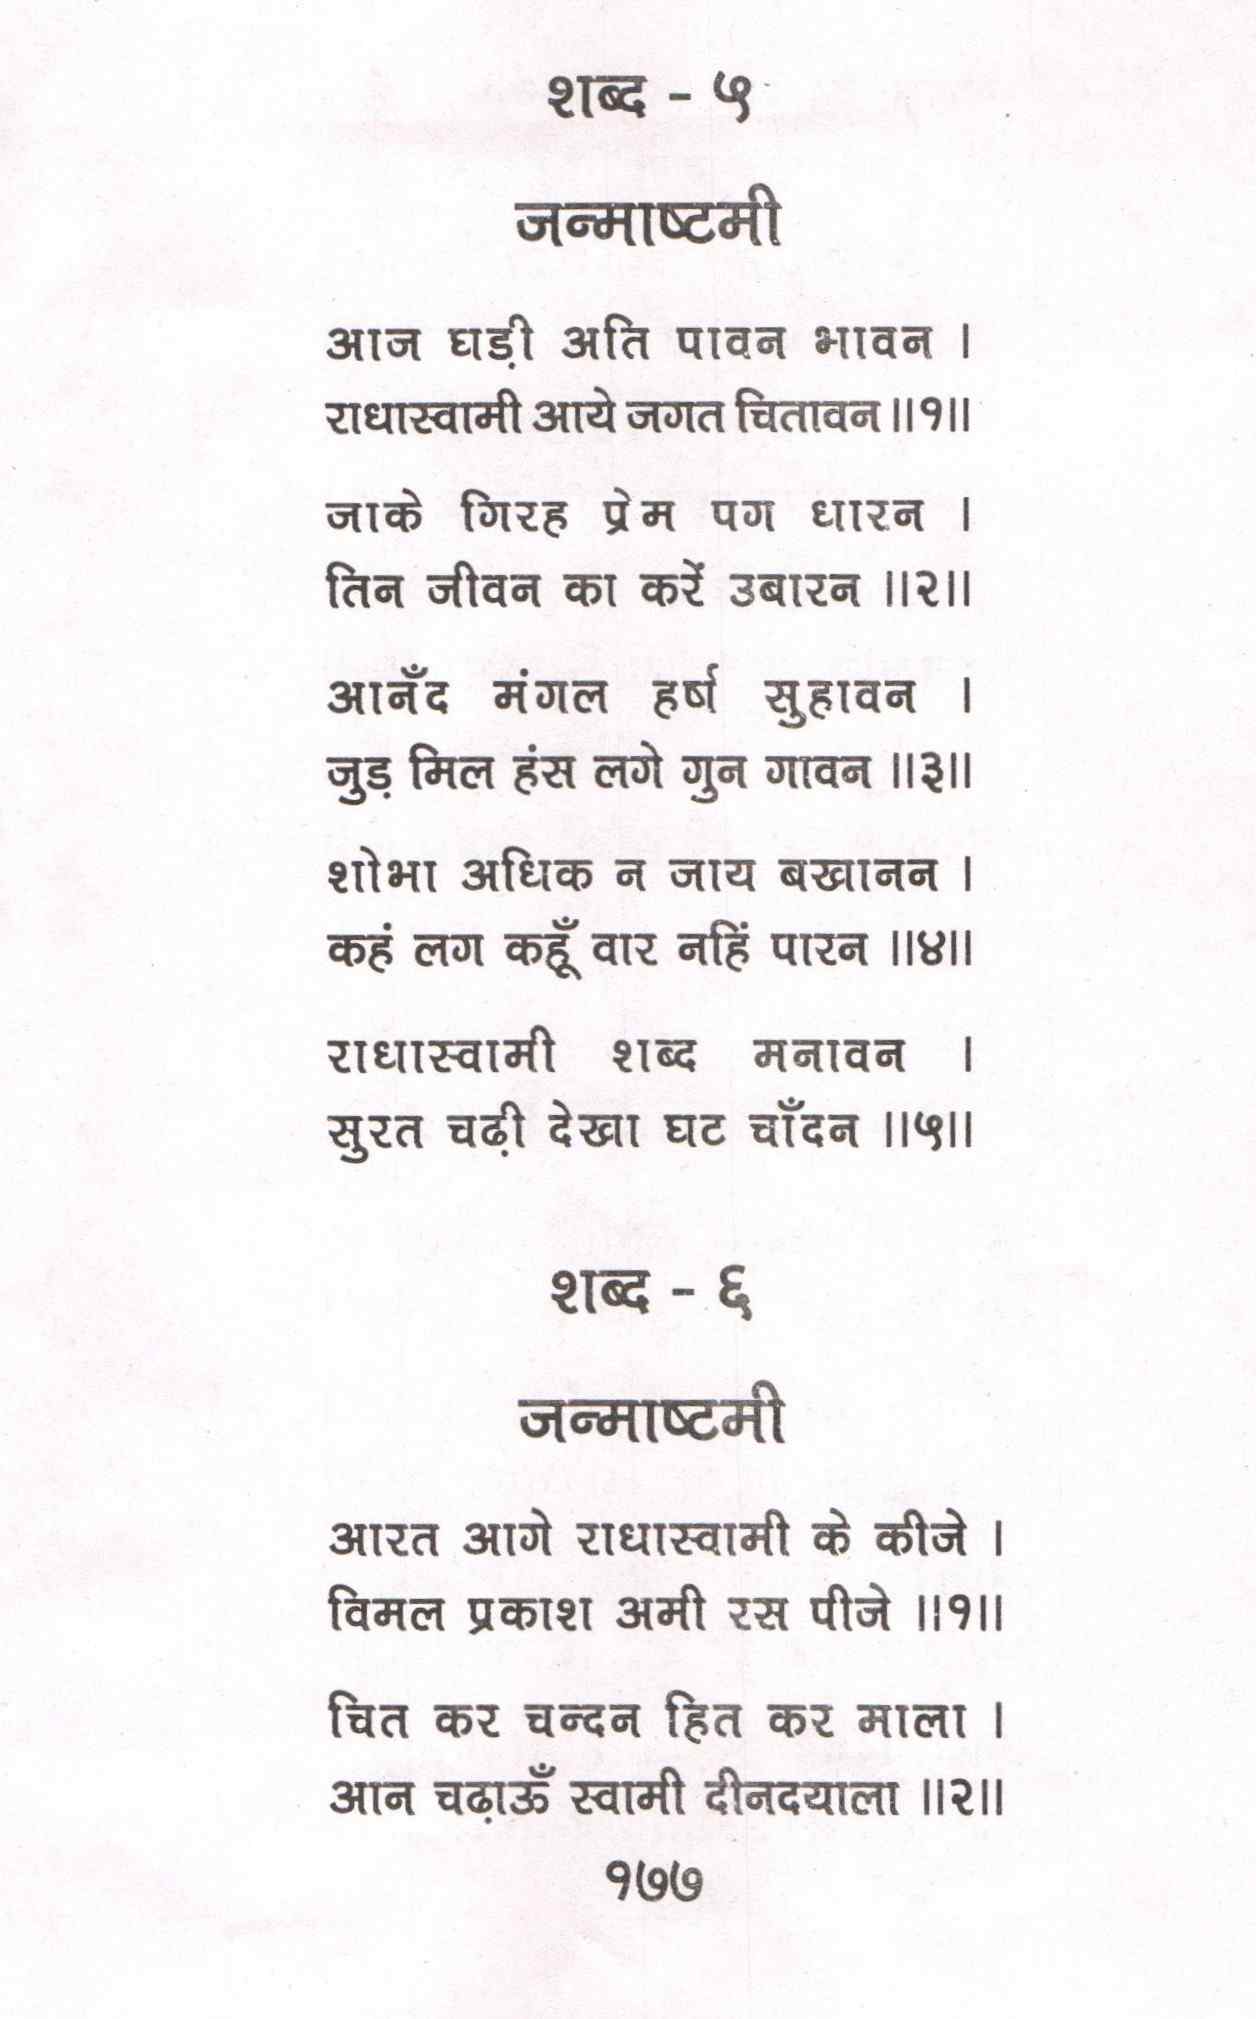 शब्द - ५
जन्माष्टमी
आज घड़ी अति पावन भावन ।
राधास्वामी आये जगत चितावन ॥१॥
जाके गिरह प्रेम पग धारन ।
तिन जीवन का करें उबारन ॥२॥
आनँद मंगल हर्ष सुहावन ।
जुड़ मिल हंस लगे गुन गावन ॥३॥
शोभा अधिक न जाय बखानन ।
कहं लग कहूँ वार नहिं पारन ॥४॥
राधास्वामी शब्द मनावन ।
सुरत चढ़ी देखा घट चाँदन ॥५॥
शब्द - ६
जन्माष्टमी
आरत आगे राधास्वामी के कीजे ।
विमल प्रकाश अमी रस पीजे ॥१॥
चित कर चन्दन हित कर माला ।
आन चढ़ाऊँ स्वामी दीनदयाला ॥२॥
१७७